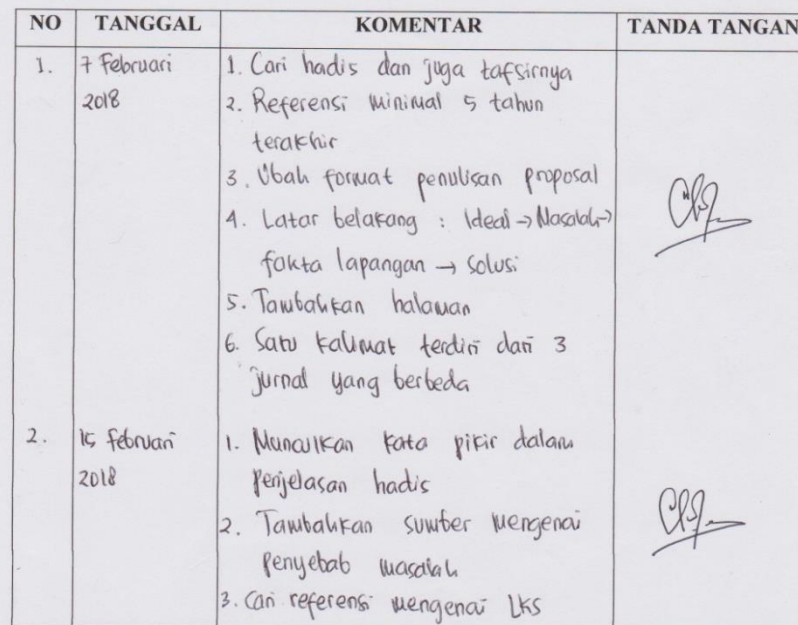 NO TANGGAL KOMENTAR TANDA TANGAN
1. 7 Februari 1. Cari hadis dan juga tafsirnya
2018 2. Referensi minimal 5 tahun
terakhir
3. Ubah format penulisan proposal
4. Latar belakang : Ideal → Masalah →
fakta lapangan → Solusi
5. Tambahkan halaman
6. Satu kalimat terdiri dari 3
jurnal yang berbeda
2. 15 februari 1. Munculkan kata pikir dalam
2018 penjelasan hadis
2. Tambahkan sumber mengenai
penyebab masalah
3. Cari referensi mengenai LKS